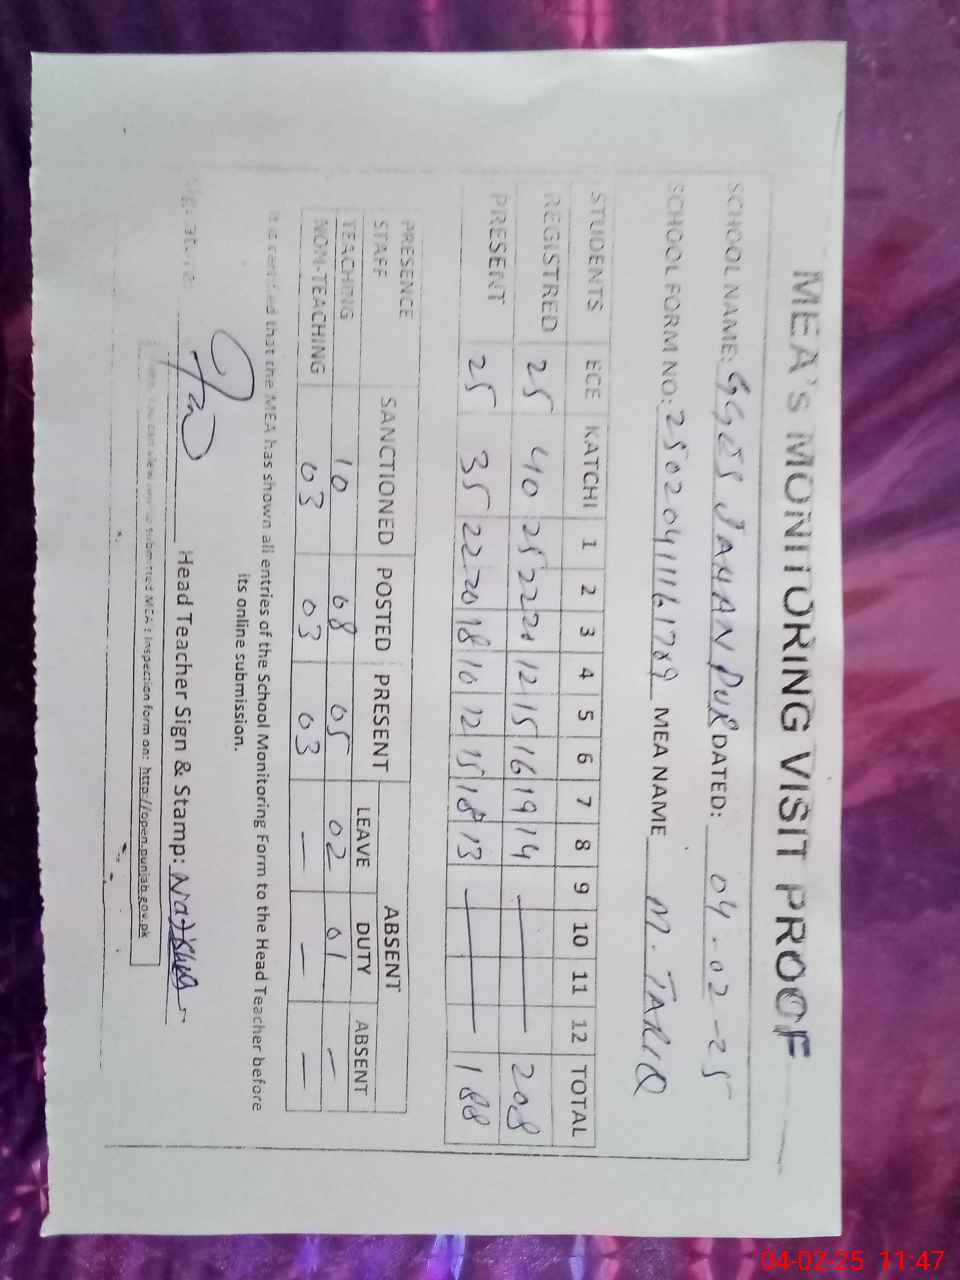 MEA's MONITORING VISIT PROOF
SCHOOL NAME: GGES JAHAN PUR DATED: 04-02-25
SCHOOL FORM NO: MEA NAME M. TARIQ
STUDENTS ECE KATCHI 1 2 3 4 5 6 7 8 9 10 11 12 TOTAL
REGISTRED 25 40 25 22 20 12 15 16 19 14 — 208
PRESENT 25 35 22 20 18 10 12 15 18 13 — 188
PRESENCE STAFF SANCTIONED POSTED PRESENT ABSENT
LEAVE DUTY ABSENT
TEACHING 10 08 05 02 01 —
NON-TEACHING 03 03 03 — — —
It is certified that the MEA has shown all entries of the School Monitoring Form to the Head Teacher before
its online submission.
Signature: Head Teacher Sign & Stamp:
you can view submitted MEA's inspection form on: http://open.punjab.gov.pk
04-02-25 11:47